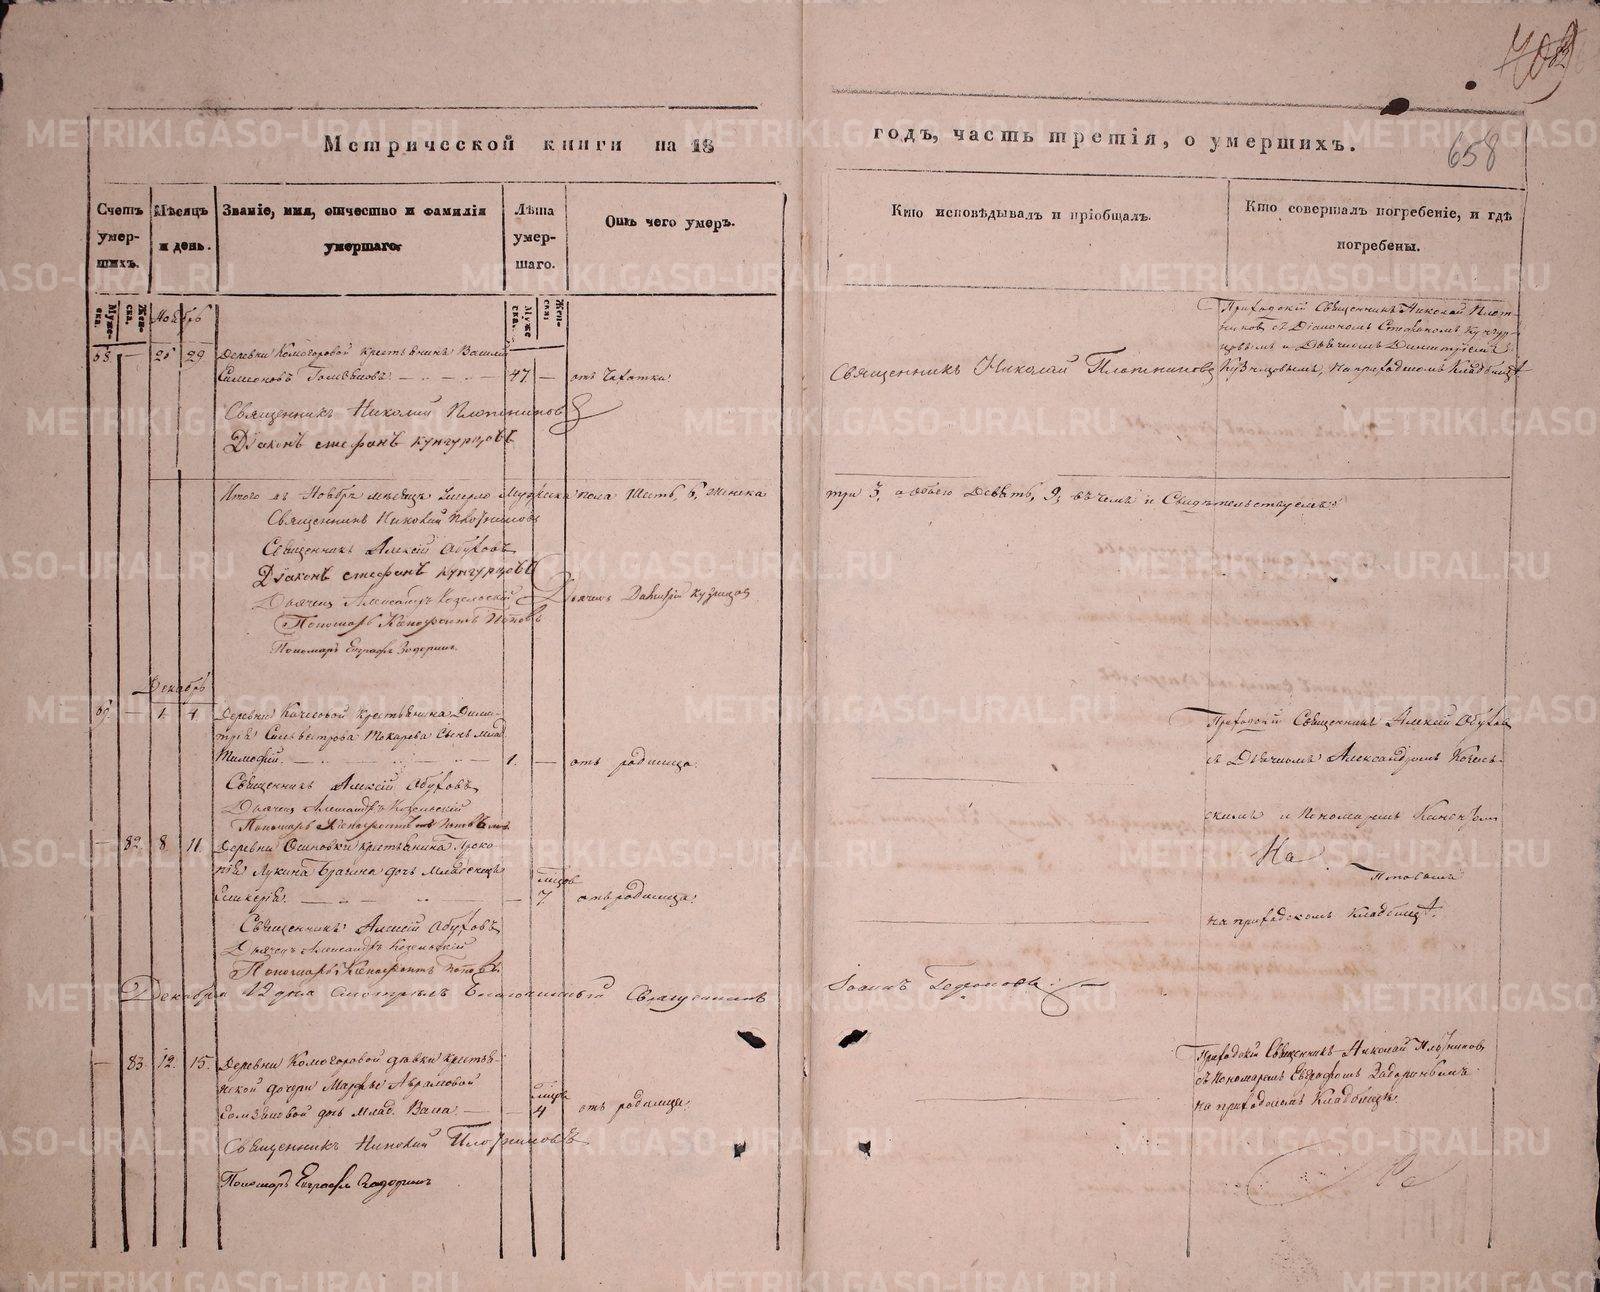 658
Метрической книги на 18
годъ, часть третія, о умершихъ.
Счетъ умер-шихъ.
Мѣсяцъ и день.
Званіе, имя, отчество и фамилія умершаго.
Лѣта умер-шаго.
Отъ чего умеръ.
Кто исповѣдывалъ и пріобщалъ.
Кто совершалъ погребеніе, и гдѣ погребены.
Муже-ска.
Жен-ска.
Ноябрь
Муже ска.
Жен-ска:
Приходскій Священникъ Николай Плот-
никовъ съ Діакономъ Стефаномъ Кунгур-
цовымъ и Дьячкомъ Димитріемъ
29 Деревни Комогоровой крестьянинъ Василій
Симеоновъ 47 — отъ чахотки
Священникъ Николай Плотниковъ
Кузнецовымъ, на приходскомъ кладбищѣ
Священникъ Николай Плотниковъ
Діаконъ Стефанъ Кунгурцовъ
Итого въ Ноябрѣ мѣсяцѣ умерло Мужеска пола Шесть, 6, Женска
три 3, а обоего Девять, 9, въ чемъ и Свидѣтельствуемъ:
Священникъ Николай Плотниковъ
Священникъ Алексій Обуховъ
Діаконъ Стефанъ Кунгурцовъ
Дьячекъ Александръ Козельскій
Дьячекъ Димитрій Кузнецовъ
Пономарь Ксенофонтъ Поповъ
Пономарь Евграфъ Задоринъ
Декабрь
1. 4. Деревни Кочневой крестьянина Дими-
трія Сильвестрова Токарева сынъ млад.
Тимофей. 1. — отъ родимца.
Приходскій Священникъ Алексій Обуховъ
съ Дьячкомъ Александромъ Козель-
скимъ и Пономаремъ Ксеноф.
Поповымъ
на приходскомъ кладбищѣ.
Священникъ Алексій Обуховъ
Дьячекъ Александръ Козельскій
Пономарь Ксенофонтъ Поповъ
— 82. 8 11. Деревни Осиновки крестьянина Проко-
пія Лукина Брагина дочь младенецъ
Гликерія. 7 отъ родимца.
Священникъ Алексій Обуховъ
Дьячекъ Александръ Козельскій
Пономарь Ксенофонтъ Поповъ
Декабря 12 дня смотрѣлъ Благочинный Священникъ
Іоаннъ
— 83 12. 15. Деревни Комогоровой дѣвки крестьян-
ской дочери Марфы Аврамовой
дочь млад. Анна — 4 отъ родимца
Приходскій Священникъ Николай Плотниковъ
съ Пономаремъ Евграфомъ Задоринымъ
на приходскомъ кладбищѣ.
Священникъ Николай Плотниковъ
Пономарь Евграфъ Задоринъ
METRIKI.GASO-URAL.RU